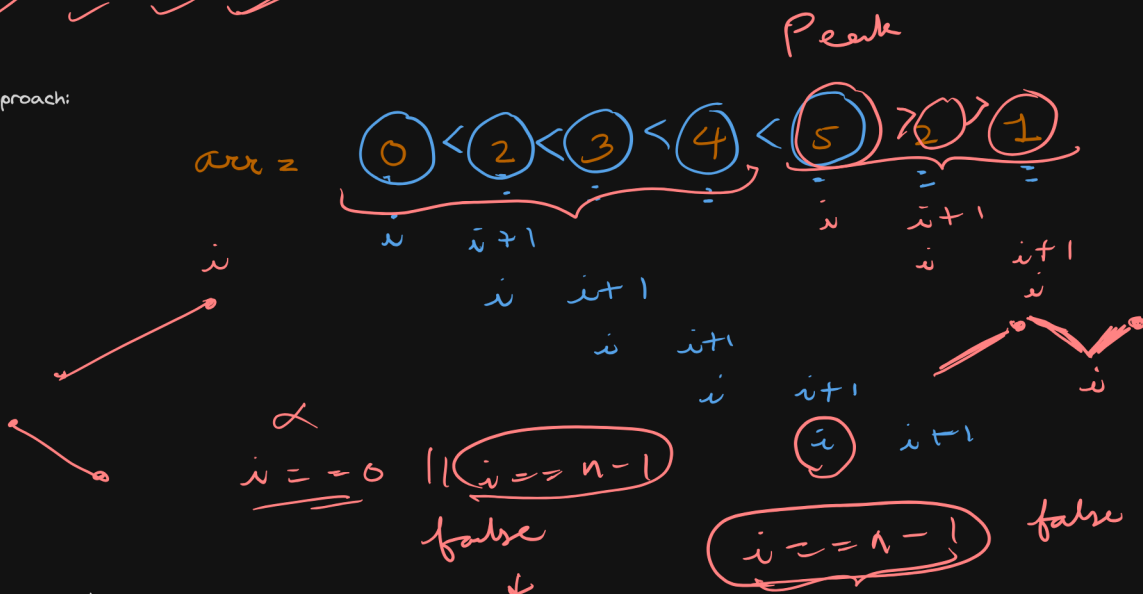 Peak
proach:
arr = 0 < 2 < 3 < 4 < 5 > 2 > 1
i i+1 i i+1
i i i+1
i i+1 i
i i+1
i
i i+1
i i+1
i == 0 || i == n-1
false
i == n-1 false